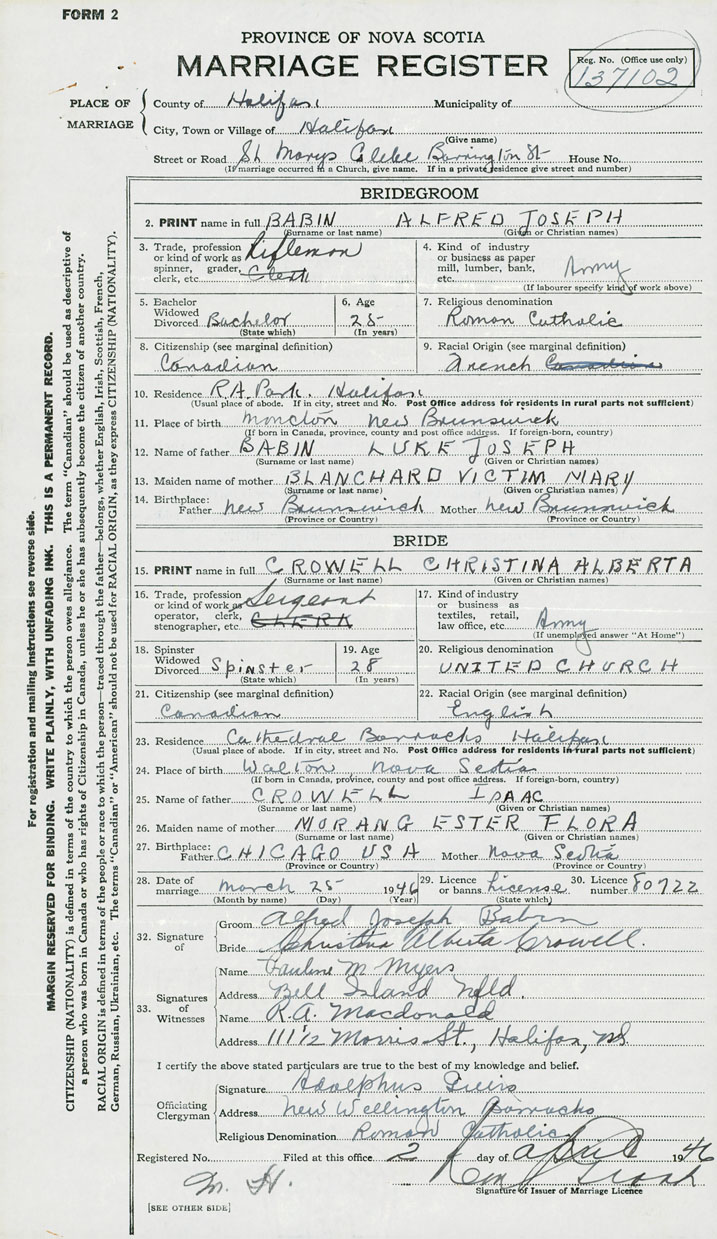 FORM 2
PROVINCE OF NOVA SCOTIA
MARRIAGE REGISTER
Reg. No. (Office use only)
137102
PLACE OF MARRIAGE
County of Halifax Municipality of
City, Town or Village of Halifax
(Give name)
Street or Road St Marys Glebe Barrington St House No.
(If marriage occurred in a Church, give name. If in a private residence give street and number)
BRIDEGROOM
2. PRINT name in full BABIN ALFRED JOSEPH
(Surname or last name) (Given or Christian names)
3. Trade, profession or kind of work as spinner, grader, clerk, etc. Rifleman Clerk
4. Kind of industry or business as paper mill, lumber, bank, etc. Army
(If labourer specify kind of work above)
5. Bachelor Widowed Divorced Bachelor
(State which)
6. Age 25
(In years)
7. Religious denomination
Roman Catholic
8. Citizenship (see marginal definition)
Canadian
9. Racial Origin (see marginal definition)
French Canadian
10. Residence R.A. Park. Halifax
(Usual place of abode. If in city, street and No. Post Office address for residents in rural parts not sufficient)
11. Place of birth Moncton New Brunswick
(If born in Canada, province, county and post office address. If foreign-born, country)
12. Name of father BABIN LUKE JOSEPH
(Surname or last name) (Given or Christian names)
13. Maiden name of mother BLANCHARD VICTIM MARY
(Surname or last name) (Given or Christian names)
14. Birthplace: Father New Brunswick Mother New Brunswick
(Province or Country) (Province or Country)
BRIDE
15. PRINT name in full CROWELL CHRISTINA ALBERTA
(Surname or last name) (Given or Christian names)
16. Trade, profession or kind of work as operator, clerk, stenographer, etc. Sergeant CLERK
17. Kind of industry or business as textiles, retail, law office, etc. Army
(If unemployed answer "At Home")
18. Spinster Widowed Divorced Spinster
(State which)
19. Age 28
(In years)
20. Religious denomination
UNITED CHURCH
21. Citizenship (see marginal definition)
Canadian
22. Racial Origin (see marginal definition)
English
23. Residence Cathedral Barracks Halifax
(Usual place of abode. If in city, street and No. Post Office address for residents in rural parts not sufficient)
24. Place of birth Walton Nova Scotia
(If born in Canada, province, county and post office address. If foreign-born, country)
25. Name of father CROWELL ISAAC
(Surname or last name) (Given or Christian names)
26. Maiden name of mother MORANG ESTER FLORA
(Surname or last name) (Given or Christian names)
27. Birthplace: Father CHICAGO USA Mother Nova Scotia
(Province or Country) (Province or Country)
28. Date of marriage March 25 1946
(Month by name) (Day) (Year)
29. Licence or banns License
(State which)
30. Licence number 80722
32. Signature of
Groom Alfred Joseph Babin
Bride Christina Alberta Crowell.
33. Signatures of Witnesses
Name Pauline M Myers
Address Bell Island Nfld.
Name R.A. Macdonald
Address 111 1/2 Morris St., Halifax, NS
I certify the above stated particulars are true to the best of my knowledge and belief.
Officiating Clergyman
Signature Adolphus
Address New Wellington Barracks
Religious Denomination Roman Catholic
Registered No. Filed at this office 2 day of April 1946
M. H.
Signature of Issuer of Marriage Licence
[SEE OTHER SIDE]
For registration and mailing instructions see reverse side.
MARGIN RESERVED FOR BINDING. WRITE PLAINLY, WITH UNFADING INK. THIS IS A PERMANENT RECORD.
CITIZENSHIP (NATIONALITY) is defined in terms of the country to which the person owes allegiance. The term "Canadian" should be used as descriptive of
a person who was born in Canada or who has rights of Citizenship in Canada, unless he or she has subsequently become the citizen of another country.
RACIAL ORIGIN is defined in terms of the people or race to which the person—traced through the father—belongs, whether English, Irish, Scottish, French,
German, Russian, Ukrainian, etc. The terms "Canadian" or "American" should not be used for RACIAL ORIGIN, as they express CITIZENSHIP (NATIONALITY).